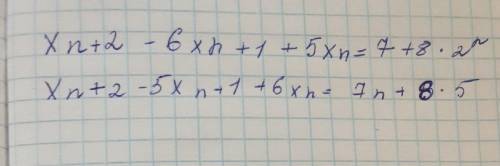 xn+2 - 6xn+1 + 5xn = 7 + 8 · 2ⁿ
xn+2 - 5xn+1 + 6xn = 7n + 8 · 5